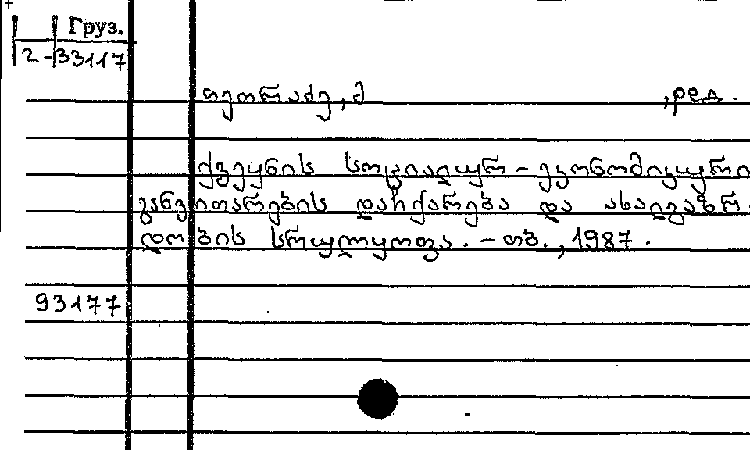 Груз.
2-33117
თეორაძე, მ , ред.
ქვეყნის სოციალურ-ეკონომიკური
განვითარების დაჩქარება და ახალგაზრ-
დობის სრულყოფა. - თბ., 1987.
93177